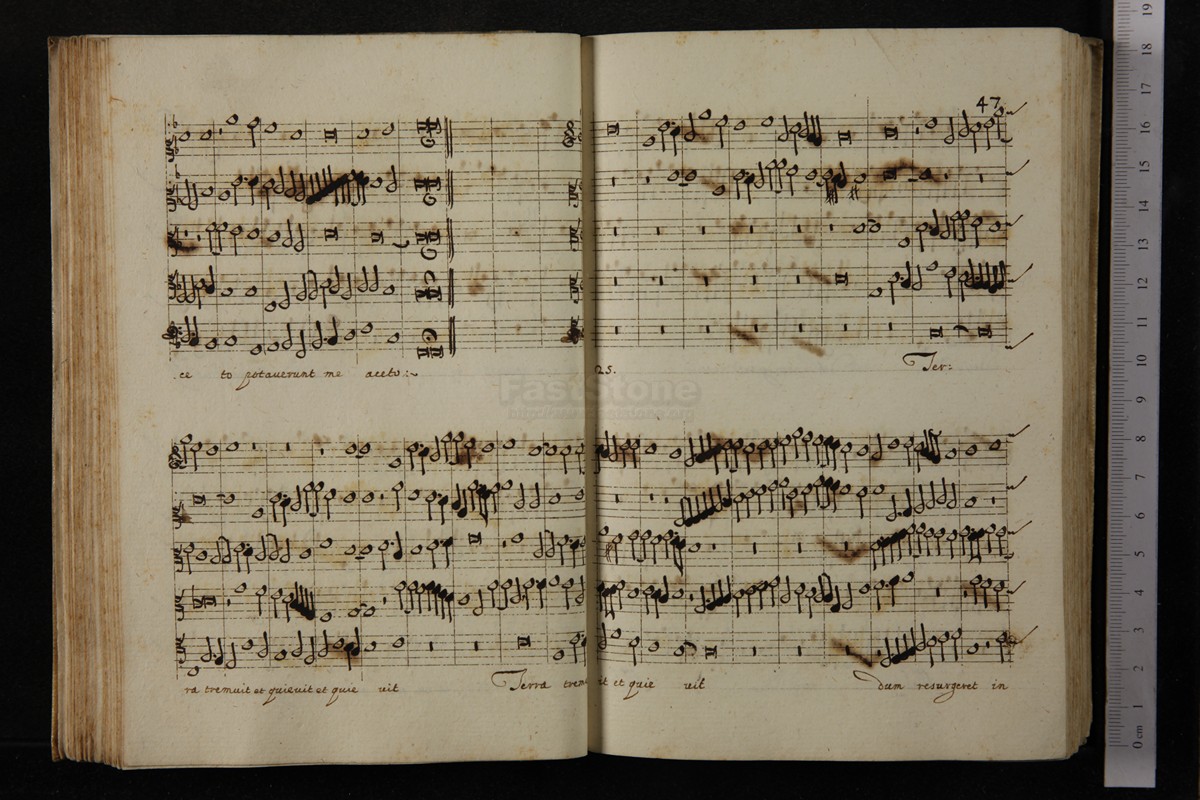 47
ce to potauerunt me aceto:~
25.
Ter:
FastStone
ra tremuit et quieuit et quie uit
Terra tremuit et quie uit
dum resurgeret in
0 cm 1 2 3 4 5 6 7 8 9 10 11 12 13 14 15 16 17 18 19